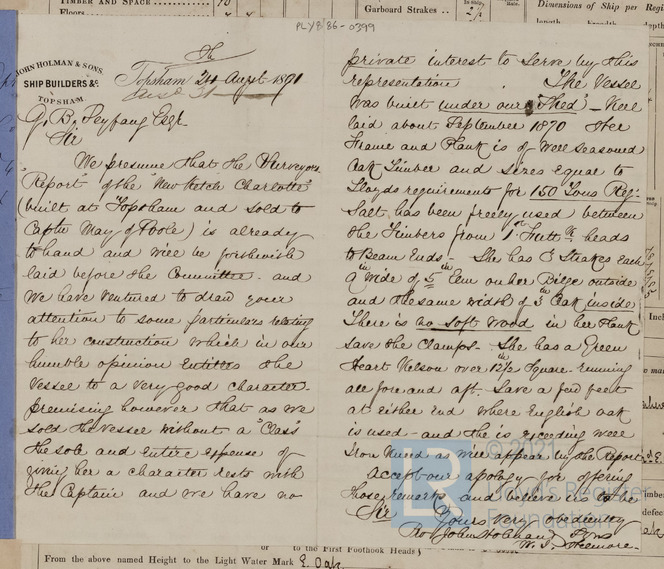 TIMBER AND SPACE
Floors
Garboard Strakes
Dimensions of Ship per Regi
length
PLY8 86-0399
JOHN HOLMAN & SONS,
SHIP BUILDERS &c
TOPSHAM.
Topsham 24 Augst 1871
G. B. Peyfang Esqr
Sir
We presume that the Surveyors
Report of the "New Ketch Charlotte"
(built at Topsham and sold to
Captn May of Poole) is already
to hand and will be forthwith
laid before the Committee - and
We have ventured to draw your
attention to some particulars relating
to her construction which in our
humble opinion Entitles the
Vessel to a very good character.
premising however that as we
sold the vessel without a "Class"
the sole and entire expense of
giving her a character rests with
the Captain and we have no
private interest to serve by this
representation. The Vessel
was built under our "Shed" - Keel
laid about September 1870 Her
Frame and Plank is of Well seasoned
Oak Timber and sizes equal to
Lloyds requirements for 150 Tons Reg.
Salt has been freely used between
the Timbers from 1st Futt heads
to Beam Ends - She has 3 Strakes Each
wide of 5 in Elm on her Bilge outside
and the same width of 3 in Oak inside
There is no soft wood in her Plank
save the Clamps. She has a Green
Heart Kelson over 12½ in Square running
all fore and aft. Save a few feet
at either End where English oak
is used - and she is exceeding well
Iron Kneed as will appear by the Report.
Accept our apology for offering
those remarks and believe us to be
Sir Yours very obediently
Pro John Holman & Sons
© 2021
LR
Lloyd's Register
Foundation
or to the First Foothook Heads
From the above named Height to the Light Water Mark E. Oak